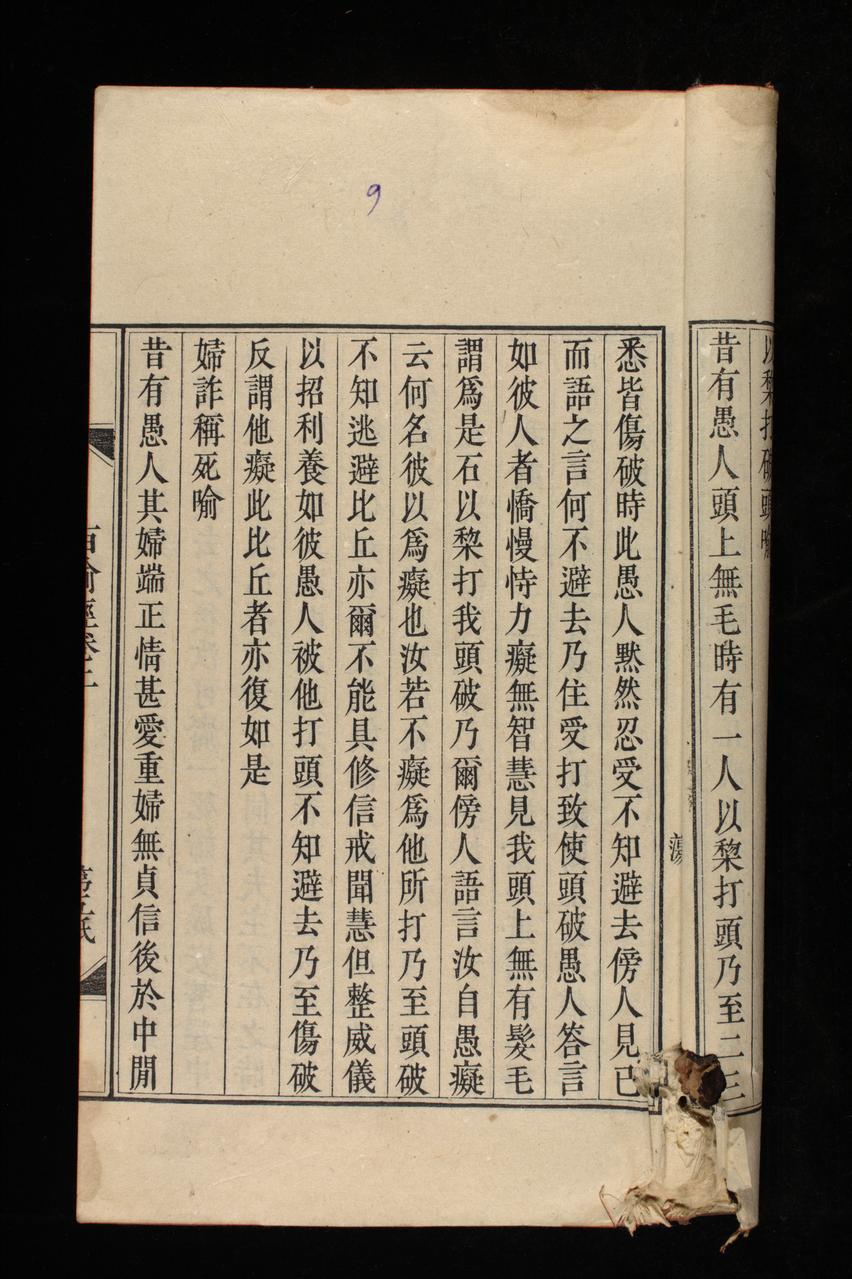 以黎打破頭喻
昔有愚人頭上無毛時有一人以黎打頭乃至二三
悉皆傷破時此愚人黙然忍受不知避去傍人見已
而語之言何不避去乃住受打致使頭破愚人答言
如彼人者憍慢恃力癡無智慧見我頭上無有髮毛
謂爲是石以黎打我頭破乃爾傍人語言汝自愚癡
云何名彼以爲癡也汝若不癡爲他所打乃至頭破
不知逃避比丘亦爾不能具修信戒聞慧但整威儀
以招利養如彼愚人被他打頭不知避去乃至傷破
反謂他癡此比丘者亦復如是
婦詐稱死喻
昔有愚人其婦端正情甚愛重婦無貞信後於中閒
百喻經卷上
9